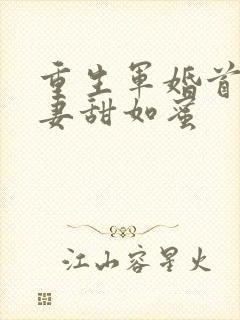 重生军婚首
妻甜如蜜
江山容星火